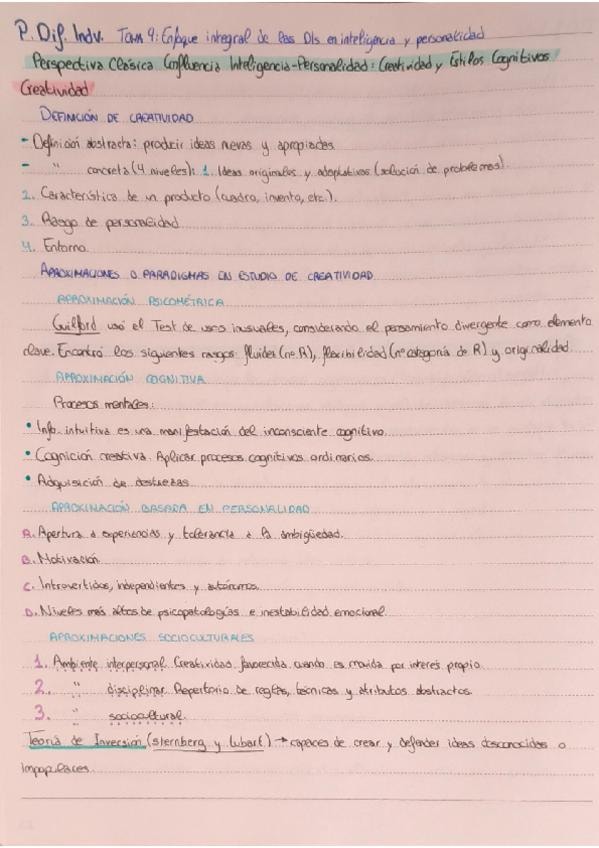 P. Dif. Indv. Tema 4: Enfoque integral de las DIs en inteligencia y personalidad
Perspectiva Clásica Confluencia Inteligencia-Personalidad: Creatividad y Estilos Cognitivos
Creatividad
DEFINICIÓN DE CREATIVIDAD
- Definición abstracta: producir ideas nuevas y apropiadas
- " concreta (4 niveles): 1. Ideas originales y adaptativas (solución de problemas).
2. Característica de un producto (cuadro, invento, etc.).
3. Rasgo de personalidad
4. Entorno
APROXIMACIONES O PARADIGMAS EN ESTUDIO DE CREATIVIDAD
APROXIMACIÓN PSICOMÉTRICA
Guilford usó el Test de usos inusuales, considerando el pensamiento divergente como elemento
clave. Encontró los siguientes rasgos: fluidez (nº R), flexibilidad (nº categoría de R) y originalidad
APROXIMACIÓN COGNITIVA
Procesos mentales:
• Info. intuitiva es una manifestación del inconsciente cognitivo.
• Cognición creativa. Aplicar procesos cognitivos ordinarios.
• Adquisición de destrezas
APROXIMACIÓN BASADA EN PERSONALIDAD
A. Apertura a experiencias y tolerancia a la ambigüedad.
B. Motivación
C. Introvertidos, independientes y autónomos.
D. Niveles más altos de psicopatologías e inestabilidad emocional.
APROXIMACIONES SOCIOCULTURALES
1. Ambiente interpersonal. Creatividad favorecida cuando es movida por interés propio.
2. " disciplinar. Repertorio de reglas, técnicas y atributos abstractos.
3. " sociocultural.
Teoría de Inversión (Sternberg y Lubart) → capaces de crear y defender ideas desconocidas o
impopulares.